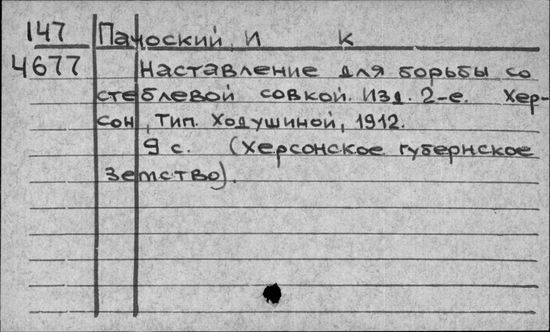 147 Пачоский, И К
4677 Наставление для борьбы со
стеблевой совкой. Изд. 2-е. Хер-
сон, тип. Ходушиной, 1912.
9 с. (Херсонское губернское
земство).